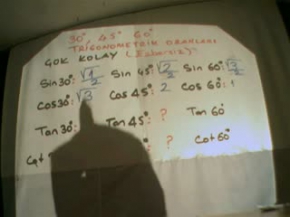 30°, 45° 60°
TRİGONOMETRİK ORANLARI
ÇOK KOLAY (
Sin30°: √1/2 Sin 45°: √2/2 Sin 60°: √3/2
Cos30°: √3 Cos 45°: 2 Cos 60°: 1
Tan30°: Tan 45°: ? Tan 60°
? Cot 60°